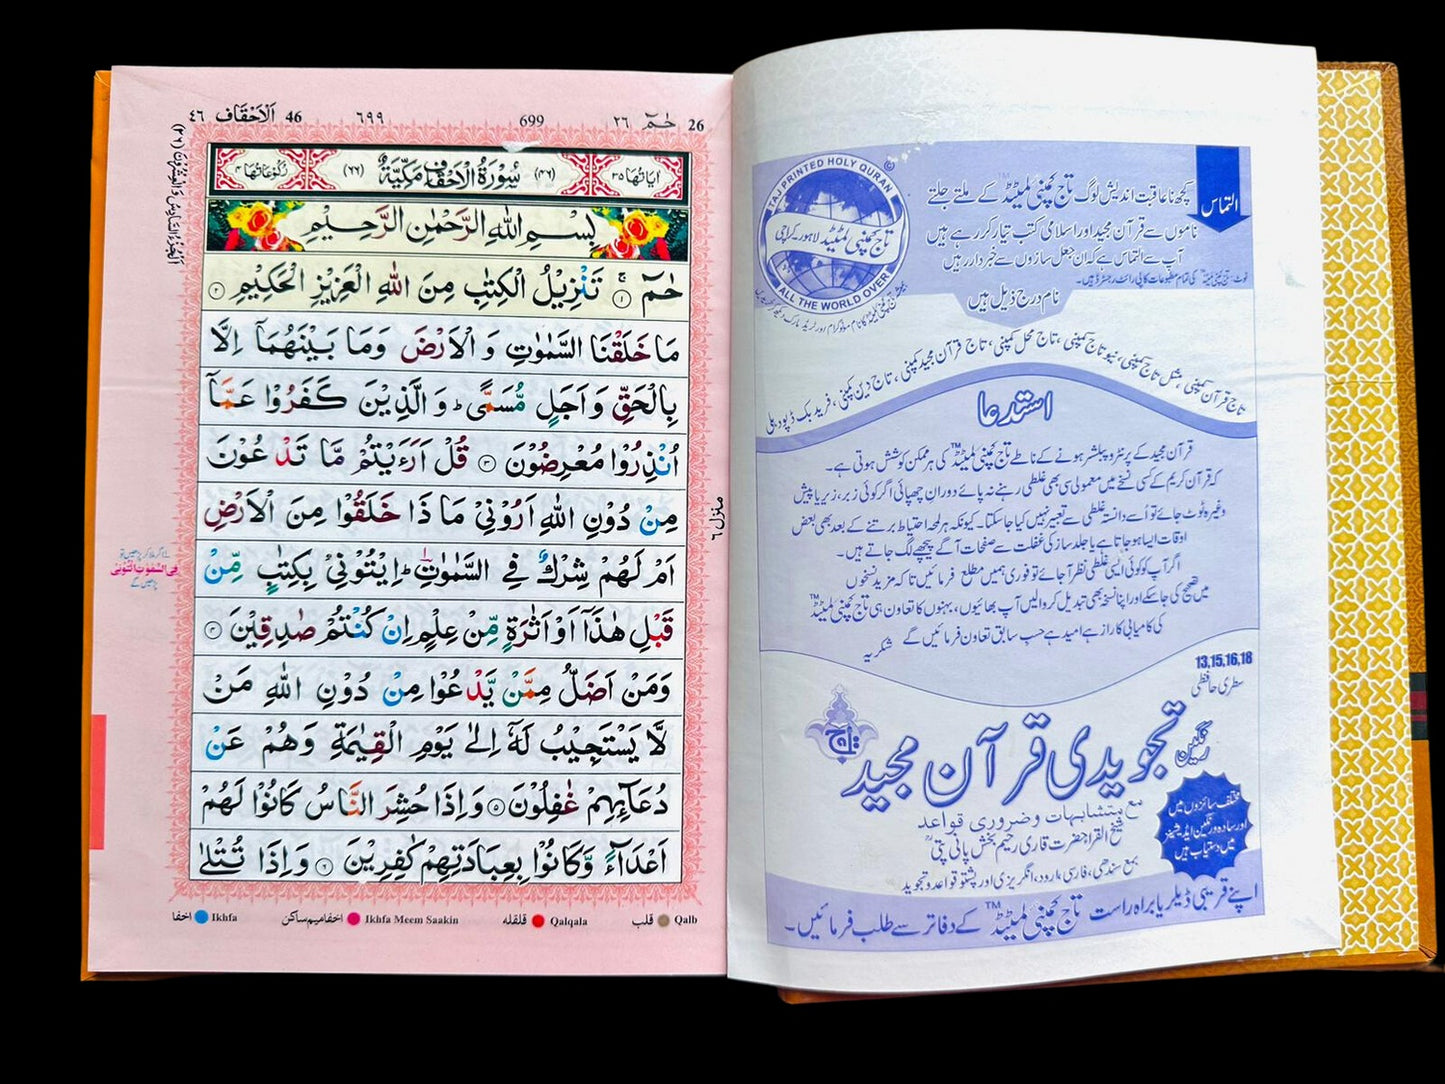 26 حٰمٓ ٢٦ 699 ٦٩٩ 46 اَلْاَحْقَاف ٤٦
اٰيَاتُهَا ٣٥ (٤٦) سُوْرَةُ الْاَحْقَافِ مَكِّيَّةٌ (٦٦) رُكُوْعَاتُهَا ٤
بِسْمِ اللّٰهِ الرَّحْمٰنِ الرَّحِيْمِ
حٰمٓ ۚ ۱ تَنْزِيْلُ الْكِتٰبِ مِنَ اللّٰهِ الْعَزِيْزِ الْحَكِيْمِ ۲
مَا خَلَقْنَا السَّمٰوٰتِ وَ الْاَرْضَ وَمَا بَيْنَهُمَاۤ اِلَّا
بِالْحَقِّ وَ اَجَلٍ مُّسَمًّى ؕ وَ الَّذِيْنَ كَفَرُوْا عَمَّاۤ
اُنْذِرُوْا مُعْرِضُوْنَ ۳ قُلْ اَرَءَيْتُمْ مَّا تَدْعُوْنَ
مِنْ دُوْنِ اللّٰهِ اَرُوْنِيْ مَا ذَا خَلَقُوْا مِنَ الْاَرْضِ
اَمْ لَهُمْ شِرْكٌ فِي السَّمٰوٰتِ ؕ اِيْتُوْنِيْ بِكِتٰبٍ مِّنْ
قَبْلِ هٰذَاۤ اَوْ اَثٰرَةٍ مِّنْ عِلْمٍ اِنْ كُنْتُمْ صٰدِقِيْنَ ۴
وَمَنْ اَضَلُّ مِمَّنْ يَّدْعُوْا مِنْ دُوْنِ اللّٰهِ مَنْ
لَّا يَسْتَجِيْبُ لَهٗۤ اِلٰى يَوْمِ الْقِيٰمَةِ وَهُمْ عَنْ
دُعَآئِهِمْ غٰفِلُوْنَ ۵ وَ اِذَا حُشِرَ النَّاسُ كَانُوْا لَهُمْ
اَعْدَآءً وَّكَانُوْا بِعِبَادَتِهِمْ كٰفِرِيْنَ ۶ وَ اِذَا تُتْلٰى
اَلْجُزْءُ السَّادِسُ وَالْعِشْرُوْنَ (٢٦)
منزل ٦
فِي السَّمٰوٰتِ ائْتُوْنِيْ
پڑھیں گے
Qalb قلب Qalqala قلقله Ikhfa Meem Saakin اخفا میم ساکن Ikhfa اخفا
TAJ PRINTED HOLY QURAN
تاج کمپنی لمیٹڈ لاہور۔کراچی
ALL THE WORLD OVER
التماس
کچھ ناعاقبت اندیش لوگ تاج کمپنی لمیٹڈ™ کے ملتے جلتے
ناموں سے قرآن مجید اور اسلامی کتب تیار کر رہے ہیں
آپ سے التماس ہے کہ ان جعل سازوں سے خبردار رہیں
نام درج ذیل ہیں
تاج قرآن کمپنی، مثل تاج کمپنی، نیو تاج کمپنی، تاج محل کمپنی، تاج قرآن مجید کمپنی، تاج دین کمپنی، فرید بک ڈپو دہلی
استدعا
قرآن مجید کے پرنٹر و پبلشر ہونے کے ناطے تاج کمپنی لمیٹڈ™ کی ہر ممکن کوشش ہوتی ہے۔
کہ قرآن کریم کے کسی نسخے میں معمولی سی بھی غلطی رہنے نہ پائے دوران چھپائی اگر کوئی زبر، زیر یا پیش
وغیرہ ٹوٹ جائے تو اُسے دانستہ غلطی سے تعبیر نہیں کیا جا سکتا۔ کیونکہ ہر لمحہ احتیاط برتنے کے بعد بھی بعض
اوقات ایسا ہو جاتا ہے یا جلد ساز کی غفلت سے صفحات آگے پیچھے لگ جاتے ہیں۔
اگر آپ کو کوئی ایسی غلطی نظر آ جائے تو فوری ہمیں مطلع فرمائیں تاکہ مزید نسخوں
میں تصحیح کی جا سکے اور اپنا نسخہ بھی تبدیل کروا لیں آپ بھائیوں، بہنوں کا تعاون ہی تاج کمپنی لمیٹڈ™
کی کامیابی کا راز ہے امید ہے حسب سابق تعاون فرمائیں گے شکریہ
13,15,16,18
سطری حافظی
رنگین تجویدی قرآن مجید
تاج
مع متشابہات وضروری قواعد
فتح القرا حضرت قاری رحیم بخش پانی پتیؒ
بمع سندھی، فارسی، اردو، انگریزی اور پشتو قواعد و تجوید
مختلف سائزوں میں
اور سادہ و رنگین ایڈیشنز
میں دستیاب ہیں
اپنے قریبی ڈیلر یا براہ راست تاج کمپنی لمیٹڈ™ کے دفاتر سے طلب فرمائیں۔